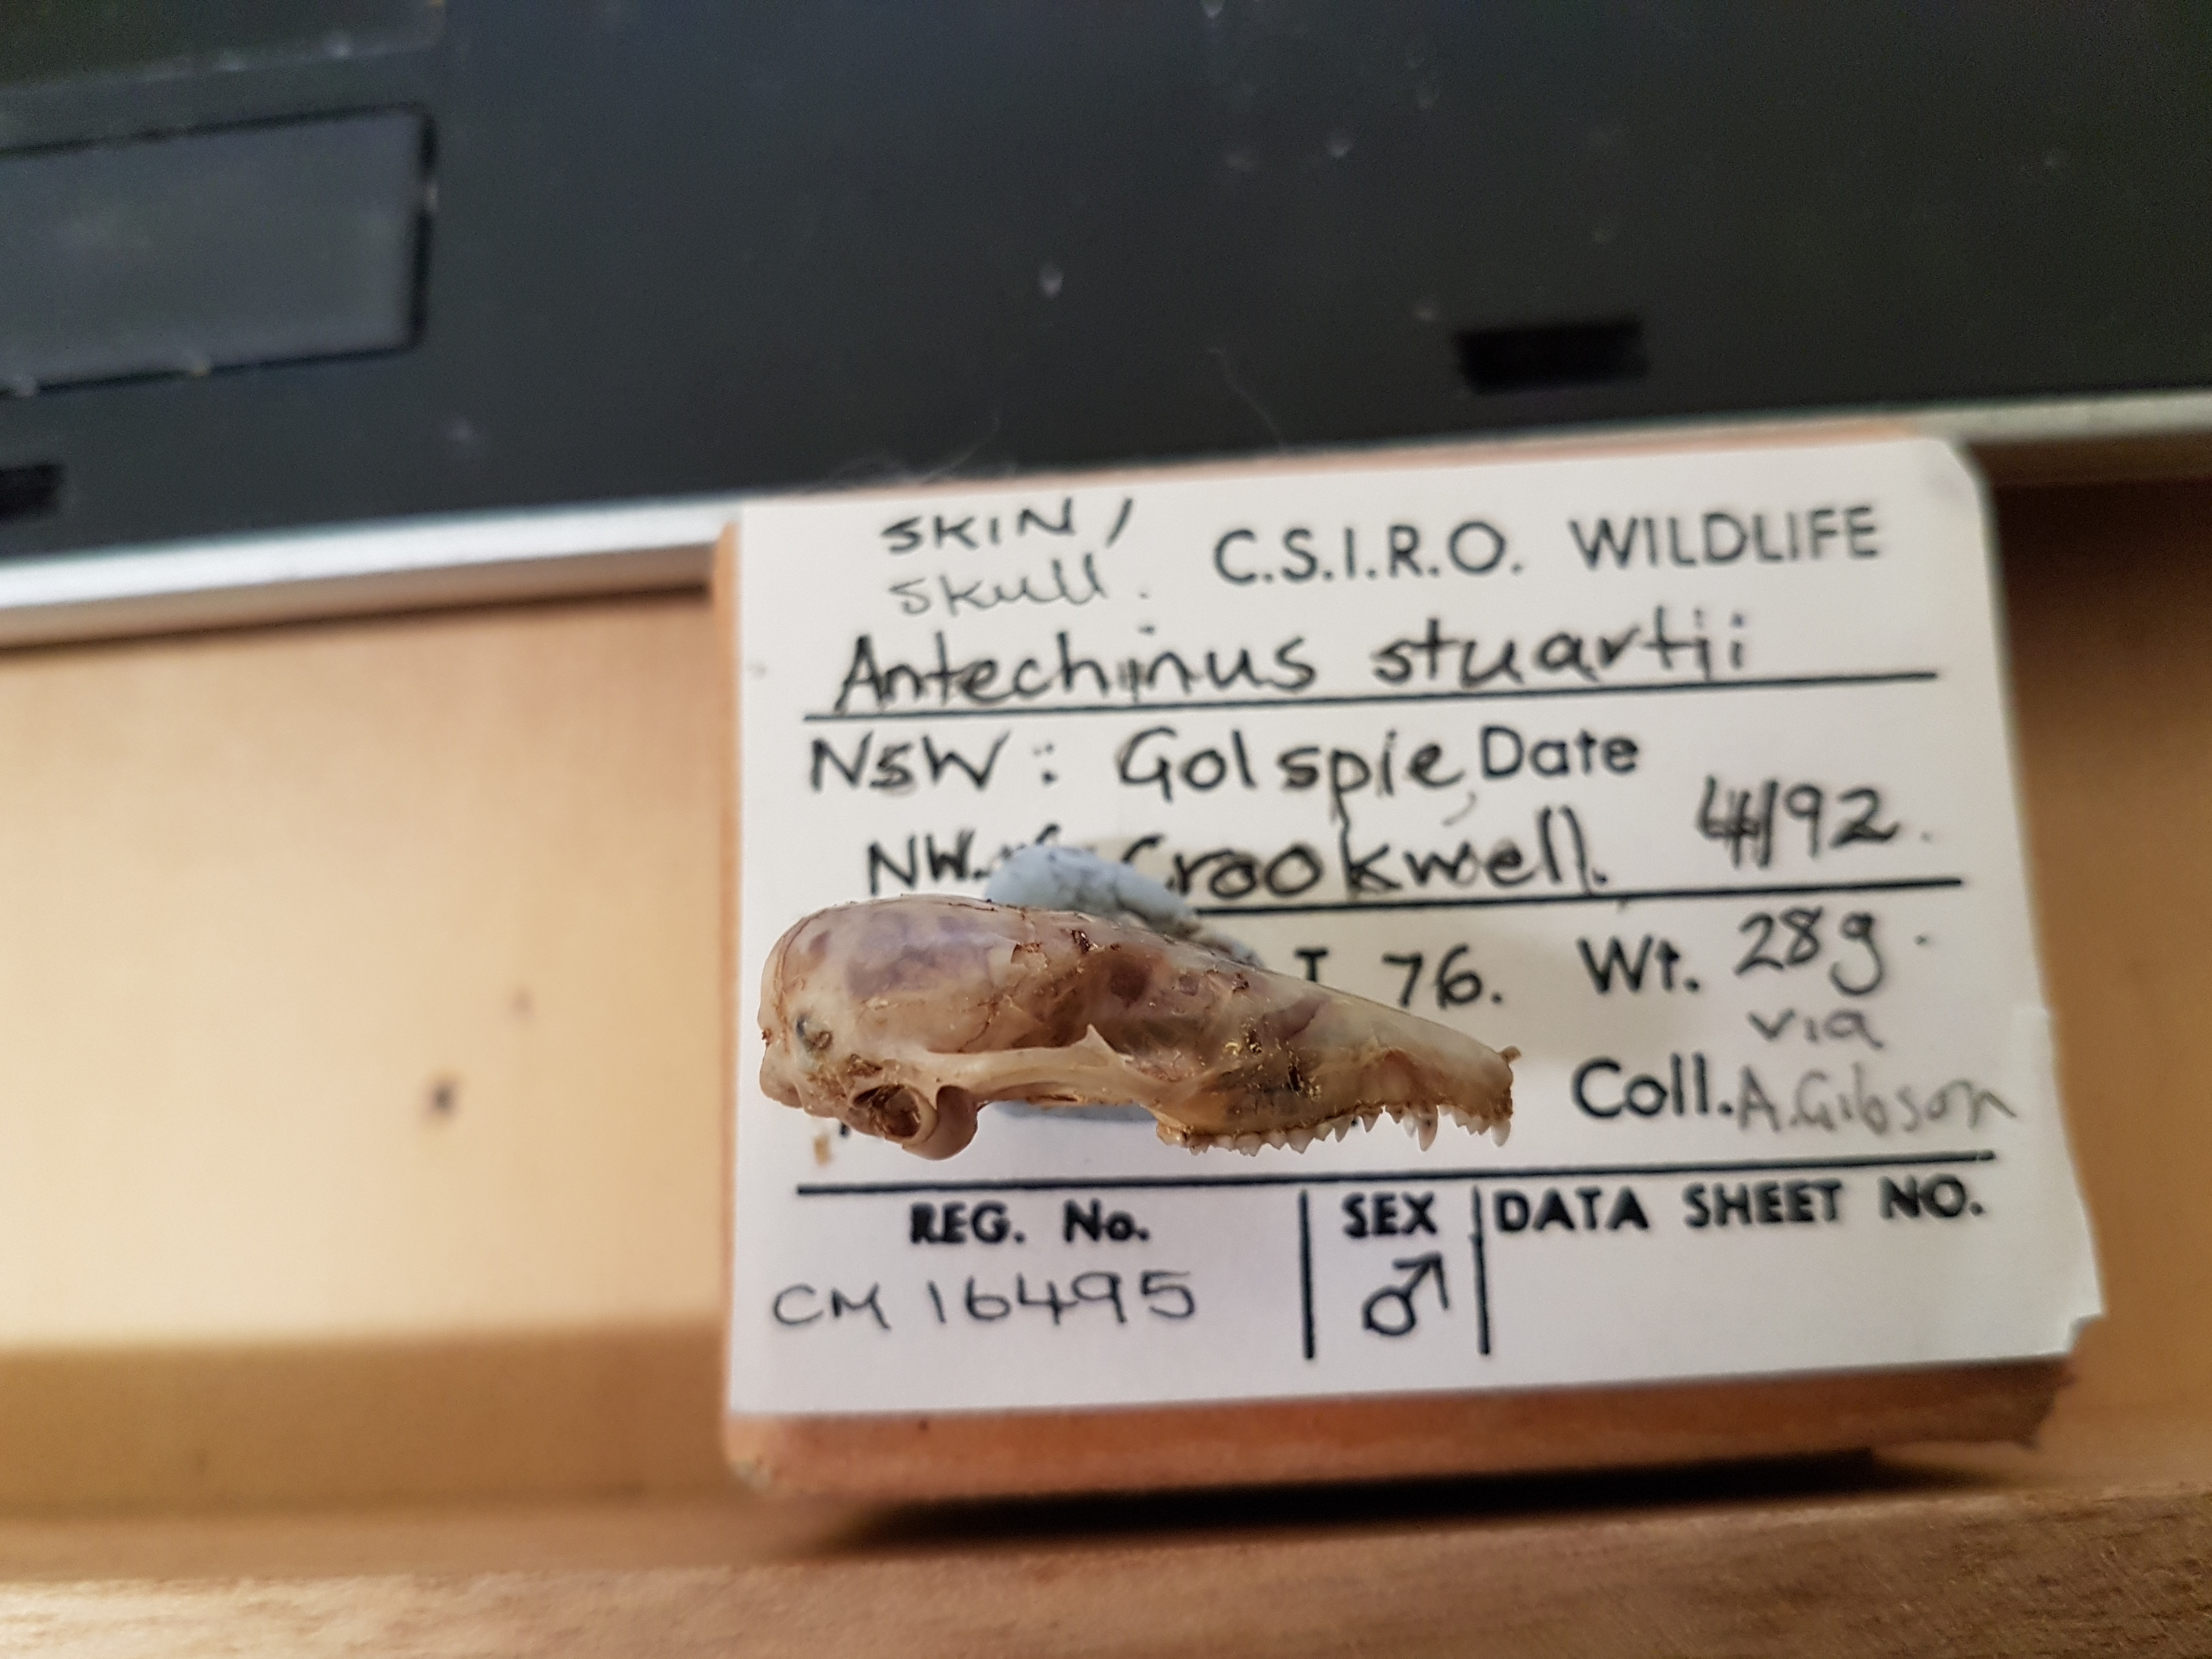 SKIN /
Skull.
C.S.I.R.O. WILDLIFE
Antechinus stuartii
NSW: Golspie, Date
NW. Crookwell. 4/92.
T 76. Wt. 28g.
via
Coll. A. Gibson
REG. No. SEX DATA SHEET NO.
CM 16495 ♂